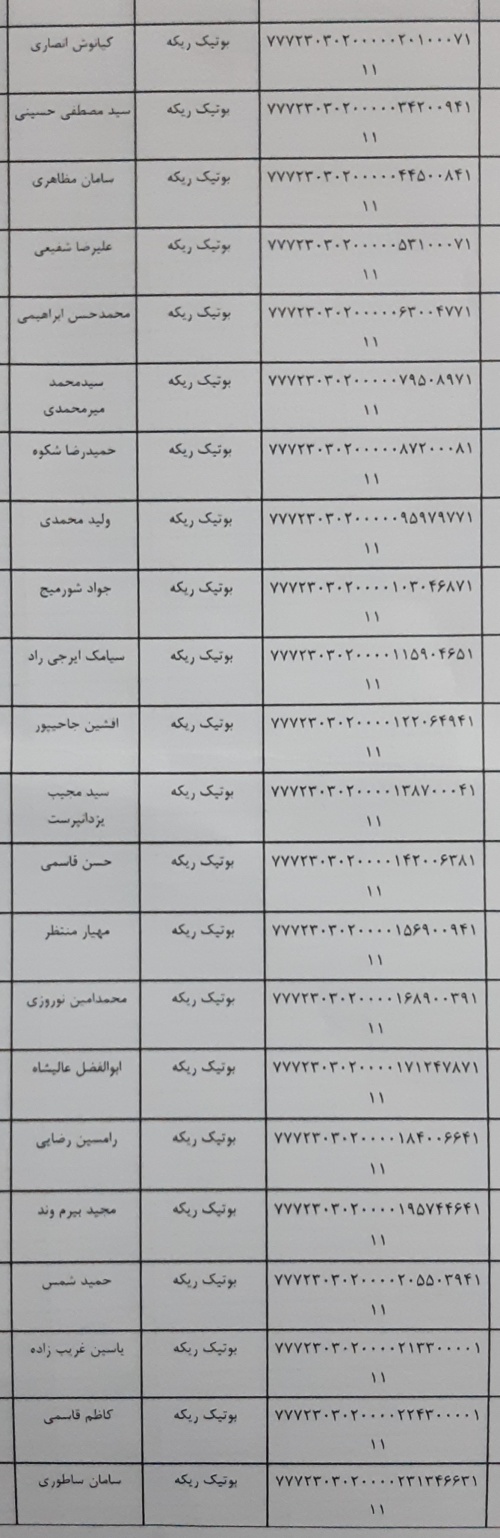 ۷۷۷۲۳۰۳۰۲۰۰۰۰۰۲۰۱۰۰۰۷۱ بوتیک ریکه کیانوش انصاری
۱۱
۷۷۷۲۳۰۳۰۲۰۰۰۰۰۳۴۲۰۰۹۴۱ بوتیک ریکه سید مصطفی حسینی
۱۱
۷۷۷۲۳۰۳۰۲۰۰۰۰۰۴۴۵۰۰۸۴۱ بوتیک ریکه سامان مظاهری
۱۱
۷۷۷۲۳۰۳۰۲۰۰۰۰۰۵۳۱۰۰۰۷۱ بوتیک ریکه علیرضا شفیعی
۱۱
۷۷۷۲۳۰۳۰۲۰۰۰۰۰۶۳۰۰۴۷۷۱ بوتیک ریکه محمدحسن ابراهیمی
۱۱
۷۷۷۲۳۰۳۰۲۰۰۰۰۰۷۹۵۰۸۹۷۱ بوتیک ریکه سیدمحمد
۱۱ میرمحمدی
۷۷۷۲۳۰۳۰۲۰۰۰۰۰۸۷۲۰۰۰۸۱ بوتیک ریکه حمیدرضا شکوه
۱۱
۷۷۷۲۳۰۳۰۲۰۰۰۰۰۹۵۹۷۹۷۷۱ بوتیک ریکه ولید محمدی
۱۱
۷۷۷۲۳۰۳۰۲۰۰۰۰۱۰۳۰۴۶۸۷۱ بوتیک ریکه جواد شورمیج
۱۱
۷۷۷۲۳۰۳۰۲۰۰۰۰۱۱۵۹۰۴۶۵۱ بوتیک ریکه سیامک ایرجی راد
۱۱
۷۷۷۲۳۰۳۰۲۰۰۰۰۱۲۲۰۶۴۹۴۱ بوتیک ریکه افشین حاجیپور
۱۱
۷۷۷۲۳۰۳۰۲۰۰۰۰۱۳۸۷۰۰۰۴۱ بوتیک ریکه سید مجیب
۱۱ یزدانپرست
۷۷۷۲۳۰۳۰۲۰۰۰۰۱۴۲۰۰۶۳۸۱ بوتیک ریکه حسن قاسمی
۱۱
۷۷۷۲۳۰۳۰۲۰۰۰۰۱۵۶۹۰۰۹۴۱ بوتیک ریکه مهیار منتظر
۱۱
۷۷۷۲۳۰۳۰۲۰۰۰۰۱۶۸۹۰۰۳۹۱ بوتیک ریکه محمدامین نوروزی
۱۱
۷۷۷۲۳۰۳۰۲۰۰۰۰۱۷۱۲۴۷۸۷۱ بوتیک ریکه ابوالفضل عالیشاه
۱۱
۷۷۷۲۳۰۳۰۲۰۰۰۰۱۸۴۰۰۶۶۴۱ بوتیک ریکه رامسین رضایی
۱۱
۷۷۷۲۳۰۳۰۲۰۰۰۰۱۹۵۷۴۴۶۴۱ بوتیک ریکه مجید بیرم وند
۱۱
۷۷۷۲۳۰۳۰۲۰۰۰۰۲۰۵۵۰۳۹۴۱ بوتیک ریکه حمید شمس
۱۱
۷۷۷۲۳۰۳۰۲۰۰۰۰۲۱۳۳۰۰۰۰۱ بوتیک ریکه یاسین غریب زاده
۱۱
۷۷۷۲۳۰۳۰۲۰۰۰۰۲۲۴۳۰۰۰۰۱ بوتیک ریکه کاظم قاسمی
۱۱
۷۷۷۲۳۰۳۰۲۰۰۰۰۲۳۱۳۴۶۶۳۱ بوتیک ریکه سامان ساطوری
۱۱